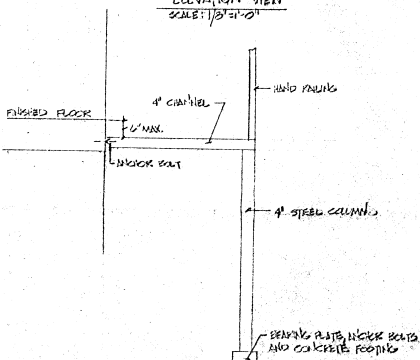 ELEVATION VIEW
SCALE: 1/8"=1'-0"
HAND RAILING
4" CHANNEL
FINISHED FLOOR
6" MAX.
ANCHOR BOLT
4" STEEL COLUMN
BEARING PLATE, ANCHOR BOLTS
AND CONCRETE FOOTING